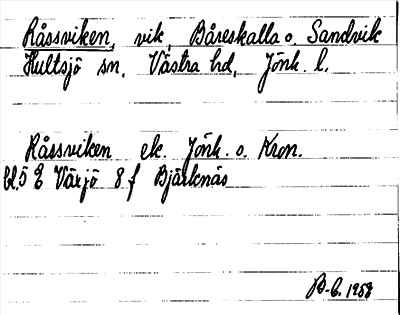 Råssviken, vik, Båreskalla o. Sandvik
Hultsjö sn, Västra hd, Jönk. l.
Råssviken ek. Jönk. o. Kron.
bl. 5 E Växjö 8 f Bjärknäs
B-C. 1958